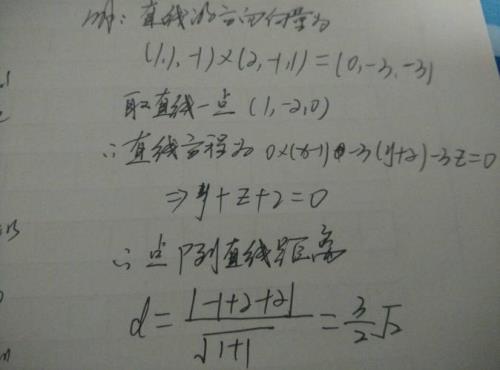 解：直线的方向向量为
(1,1,-1)×(2,-1,1)=(0,-3,-3)
取直线一点(1,-2,0)
∴直线方程为 0×(x-1)-3(y+2)-3z=0
⇒y+z+2=0
∴点P到直线距离
d=|-1+2+2|/√1+1=3/2√2